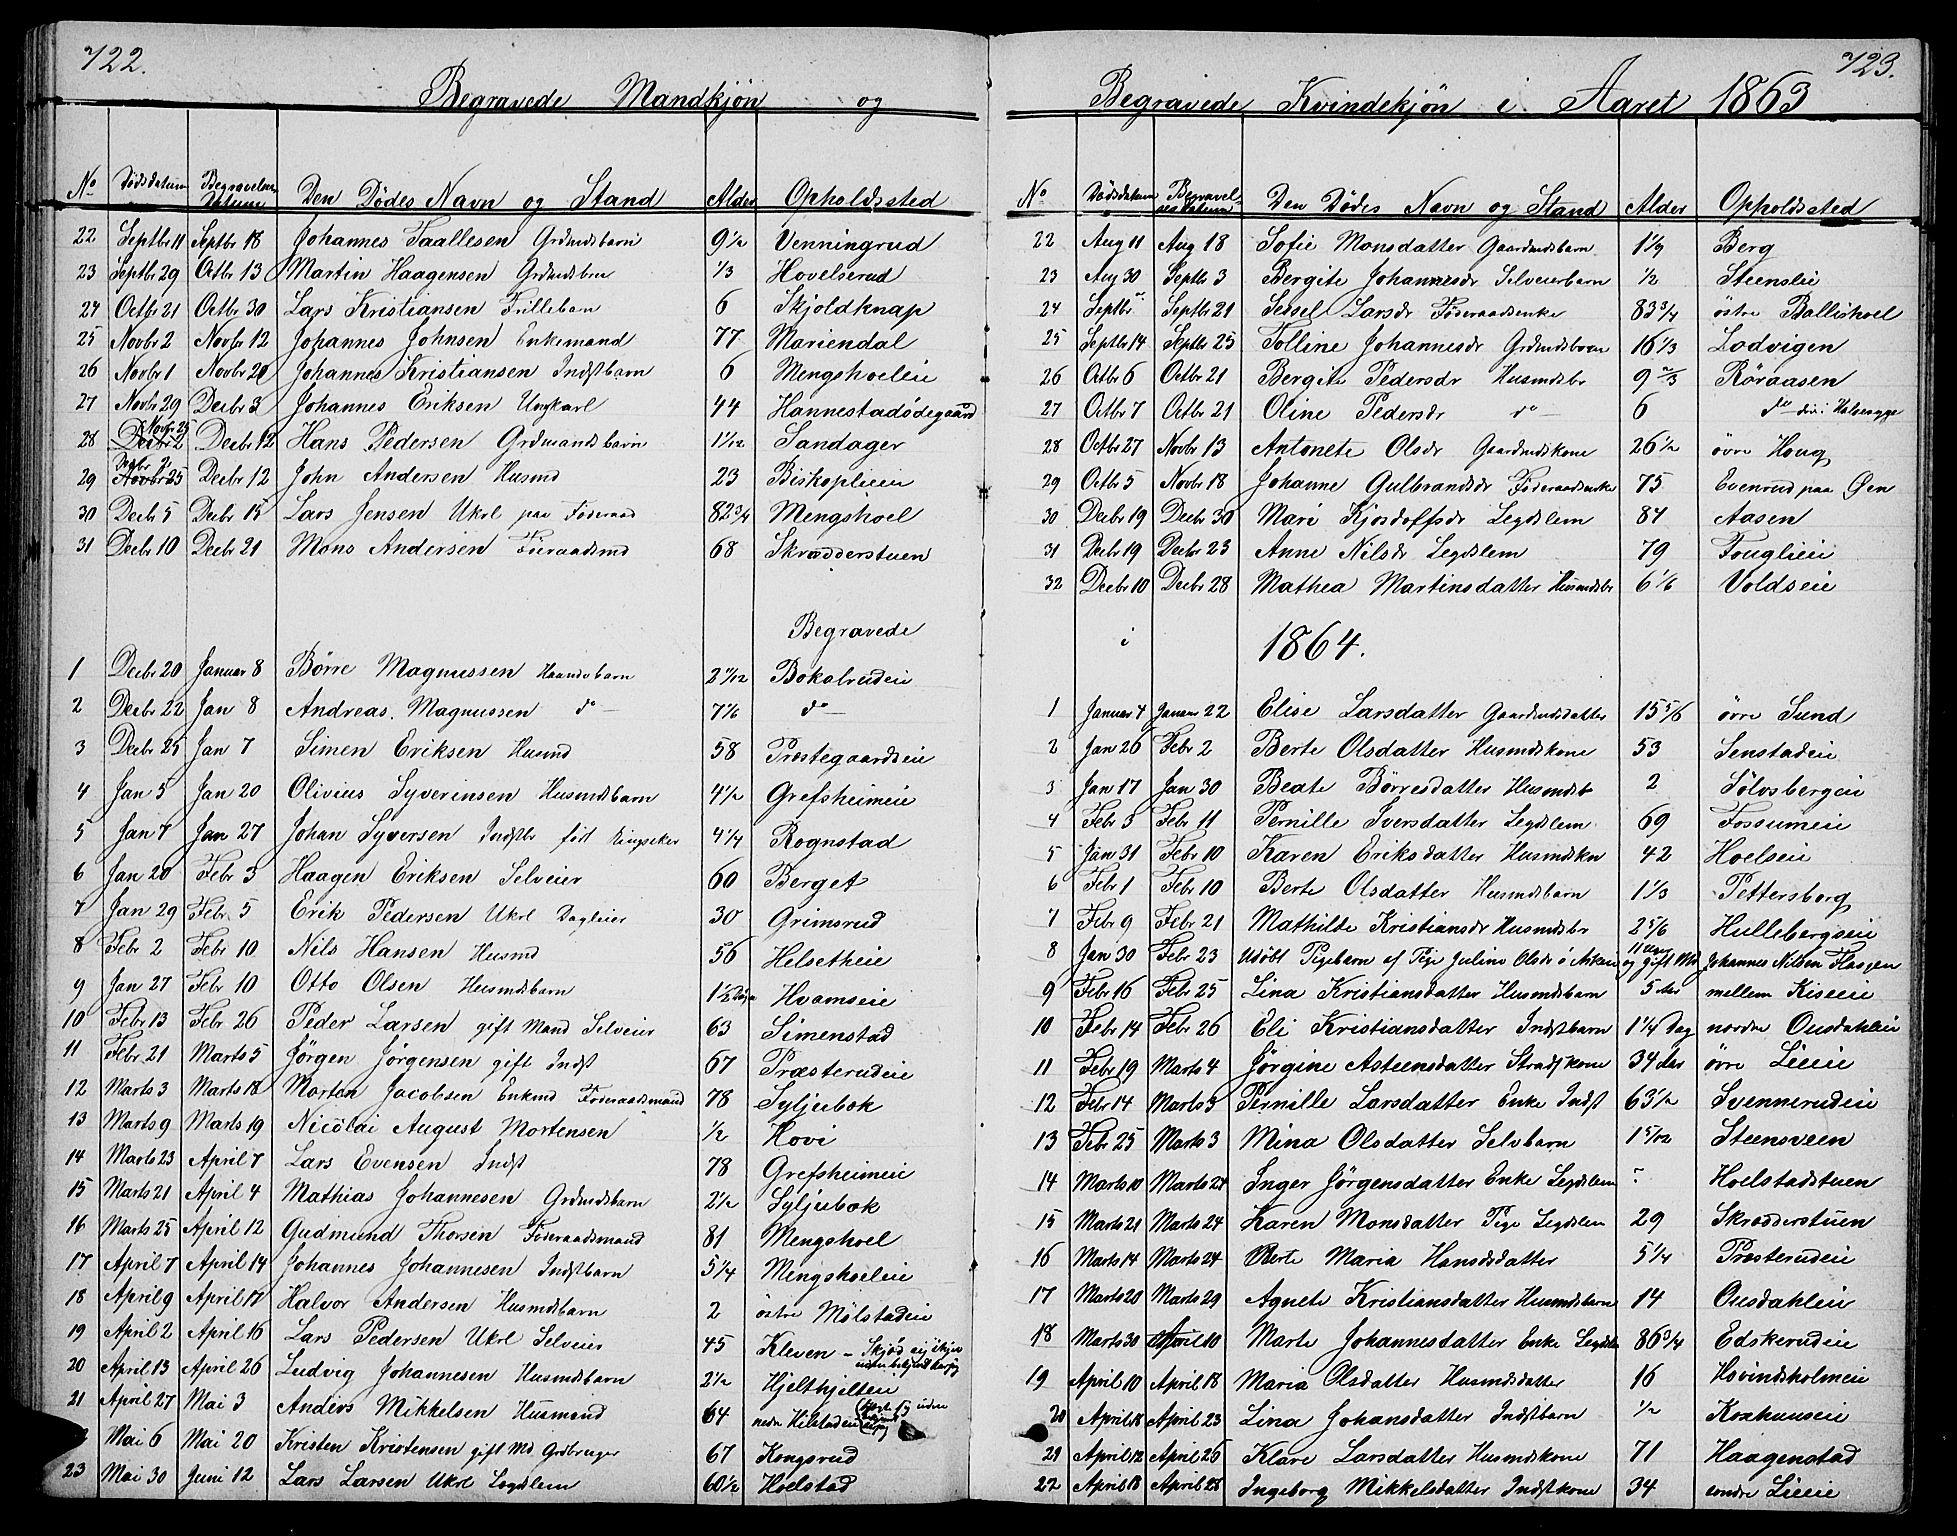 722.
Begravede Mandkjøn og
No Dødsdatum Begravelses Datum Den Dødes Navn og Stand Alder Opholdssted
22 Septbr 11 Septbr 18 Johannes Taallesen Grdmdsbarn 9 1/2 Venningrud
23 Septbr 29 Octbr 13 Martin Haagensen Grdmdsbrn 1/3 Hovelserud
24 Octbr 21 Octbr 30 Lars Kristiansen Frillebarn 6 Skjoldknap
25 Novbr 2 Novbr 12 Johannes Johnsen Enkemand 77 Mariendal
26 Novbr 1 Novbr 20 Johannes Kristiansen Indstbarn 6 Mengshoeleie
27 Novbr 29 Decbr 3 Johannes Eriksen Ungkarl 44 Hannestadødegaard
28 Decbr 2 Novbr 25 Decbr 12 Hans Pedersen Grdmandsbarn 1 1/12 Sandager
29 Novbr 25 Decbr 12 John Andersen Husmd 23 Biskoplieie
30 Decbr 5 Decbr 15 Lars Jensen Ukrl paa Føderaad 82 3/4 Mengshoel
31 Decbr 10 Decbr 21 Mons Andersen Føderaadsmd 68 Skrædderstuen
Begravede
1 Decbr 20 Januar 8 Børre Magnussen Haandvbarn 2 11/12 Bokalrudeie
2 Decbr 22 Jan 8 Andreas Magnussen do 7 1/6 do
3 Decbr 25 Jan 7 Simen Eriksen Husmd 58 Prestegaardseie
4 Jan 5 Jan 20 Olivius Syverinsen Husmdsbarn 4 1/2 Grefsheimeie
5 Jan 7 Jan 27 Johan Syversen Indstbr født Ringseker 4 1/4 Rognstad
6 Jan 20 Febr 3 Haagen Eriksen Selveier 60 Berget
7 Jan 29 Febr 5 Erik Pedersen Ukrl Dagleier 30 Grimsrud
8 Febr 2 Febr 10 Nils Hansen Husmd 56 Helsetheie
9 Jan 27 Febr 10 Otto Olsen Husmdsbarn 1 1/2 Hvamseie
10 Febr 13 Febr 26 Peder Larsen gift Mand Selveier 63 Simenstad
11 Febr 21 Marts 5 Jørgen Jørgensen gift Indst 67 Præsterudeie
12 Marts 3 Marts 18 Morten Jacobsen Enkmd Føderaadsmand 78 Syljubok
13 Marts 9 Marts 19 Nicolai August Mortensen 1/2 Hovi
14 Marts 23 April 7 Lars Evensen Indst 78 Grefsheimeie
15 Marts 21 April 4 Mathias Johannesen Grdmdsbarn 2 1/2 Syljubok
16 Marts 25 April 12 Gudmund Thorsen Føderaadsmand 81 Mengshoel
17 April 7 April 14 Johannes Johannesen Indstbarn 5 1/4 Mengshoeleie
18 April 9 April 17 Halvor Andersen Husmdsbarn 2 østre Molstadeie
19 April 2 April 16 Lars Pedersen Ukrl Selveier 45 Kleven
20 April 13 April 26 Ludvig Johannesen Husmdsbarn 2 1/2 Hjelthjelteie
21 April 27 Mai 3 Anders Mikkelsen Husmand 64 nedre Hilstadeie
Mai 6 Mai 20 Kristen Kristensen gift Md Grdbruger 67 Kongsrud
23 Mai 30 Juni 12 Lars Larsen Ukrl Legdslem 60 1/2 Hoelstad
723.
Begravede Kvindekjøn i Aaret 1863
No Dødsdatum Begravelsesdatum Den Dødes Navn og Stand Alder Oppholdssted
22 Aug 11 Aug 18 Sofie Monsdatter Gaardmdsbarn 1 1/9 Berg
23 Aug 30 Septbr 3 Bergite Johannesdr Selveierbarn 1/2 Steenslie
24 Septbr Septbr 21 Sessel Larsdr Føderaadsenke 83 3/4 østre Ballishoel
25 Septbr 14 Septbr 25 Tolline Johannesdr Grdmdsbarn 16 1/3 Lodvigen
26 Octbr 6 Octbr 21 Bergite Pedersdr Husmdsbr 9 2/3 Røraasen
27 Octbr 7 Octbr 21 Oline Pedersdr do 6 do
28 Octbr 27 Novbr 13 Antonete Olsdr Gaardmdskone 26 1/2 øvre Houg
29 Octbr 5 Novbr 18 Johanne Gulbrandsdr Føderaadsenke 75 Evenrud paa Øen
30 Decbr 19 Decbr 30 Mari Kjosdolfsdr Legdslem 84 Aasen
31 Decbr 19 Decbr 23 Anne Nilsdr Legdslem 79 Fouglieie
32 Decbr 10 Decbr 28 Mathea Martinsdatter Husmdsbr 6 1/6 Voldseie
i 1864.
1 Januar 4 Januar 22 Elise Larsdatter Gaardmdsdatter 15 5/6 øvre Sund
2 Jan 26 Febr 2 Berte Olsdatter Husmdskone 53 Senstadeie
3 Jan 17 Jan 30 Beate Børresdatter Husmdsb 2 Sølvsbergeie
4 Febr 3 Febr 11 Pernille Iversdatter Legdslem 69 Fossumeie
5 Jan 31 Febr 10 Karen Eriksdatter Husmdskn 42 Hoelseie
6 Febr 1 Febr 10 Berte Olsdatter Husmdsbarn 1 1/3 Pettersborg
7 Febr 9 Febr 21 Mathilde Kristiansdr Husmdsbr 2 5/6 Hullebergseie
8 Jan 30 Febr 23 Udøbt Pigebarn af Pige Juline Olsdr og gift Md Johannes Nilsen Flasgen
9 Febr 16 Febr 25 Lina Kristiansdatter Husmdsbarn 5 Aar mellem Kiseeie
10 Febr 14 Febr 26 Eli Kristiansdatter Indstbarn 1 1/4 Dag nordre Ousdahleie
11 Febr 19 Marts 4 Jørgine Asteensdatter Strandskone 34 Aar øvre Lieeie
12 Febr 14 Marts 3 Pernille Larsdatter Enke Indst 63 1/2 Svennerudeie
13 Febr 25 Marts 3 Mina Olsdatter Selvbarn 1 5/12 Steensveen
14 Marts 10 Marts 24 Inger Jørgensdatter Enke Legdslem - Hoelstadstuen
15 Marts 21 Marts 24 Karen Monsdatter Pige Legdslem 29 Skrædderstuen
16 Marts 14 Marts 24 Berte Maria Hansdsdatter 5 1/4 Præsterudeie
17 Marts 20 Marts 29 Agnete Kristiansdatter Husmdsbarn 14 Ousdahleie
18 Marts 30 April 10 Marte Johannesdatter Enke Legdslm 86 3/4 Edskerudeie
19 April 10 April 18 Maria Olsdatter Husmdsdatter 16 Hovindsholmeie
20 April 18 April 23 Lina Johansdatter Indstbarn 1/2 Kraehuuseie
21 April 12 April 26 Klare Larsdatter Husmdskone 71 Haagenstad
22 April 18 April 28 Ingeborg Mikkelsdatter Indstkone 34 søndre Lieeie